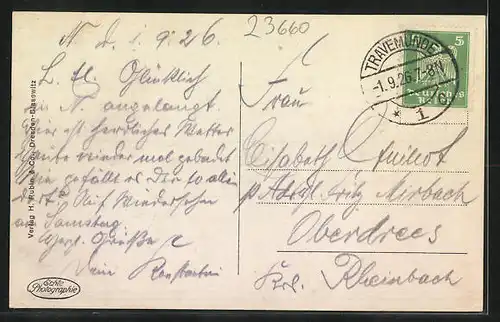 23660
N. d. 1.9.26
L. M. Glücklich
in N. angelangt.
Hier ist herrliches Wetter
heute wieder mal gebadet
wie gefällt es Dir so allein
dort? Auf Wiedersehn
am Samstag
Herzl. Grüße
Dein Konstantin
Frau
Elisabeth
p Adr. Fritz Mirbach
Oberdrees
Krs. Rheinbach
TRAVEMÜNDE
-1.9.26.7-8N
* 1
5
Deutsches
Reich
Verlag H. Rubin & Co., Dresden-Blasewitz
Echte
Photographie